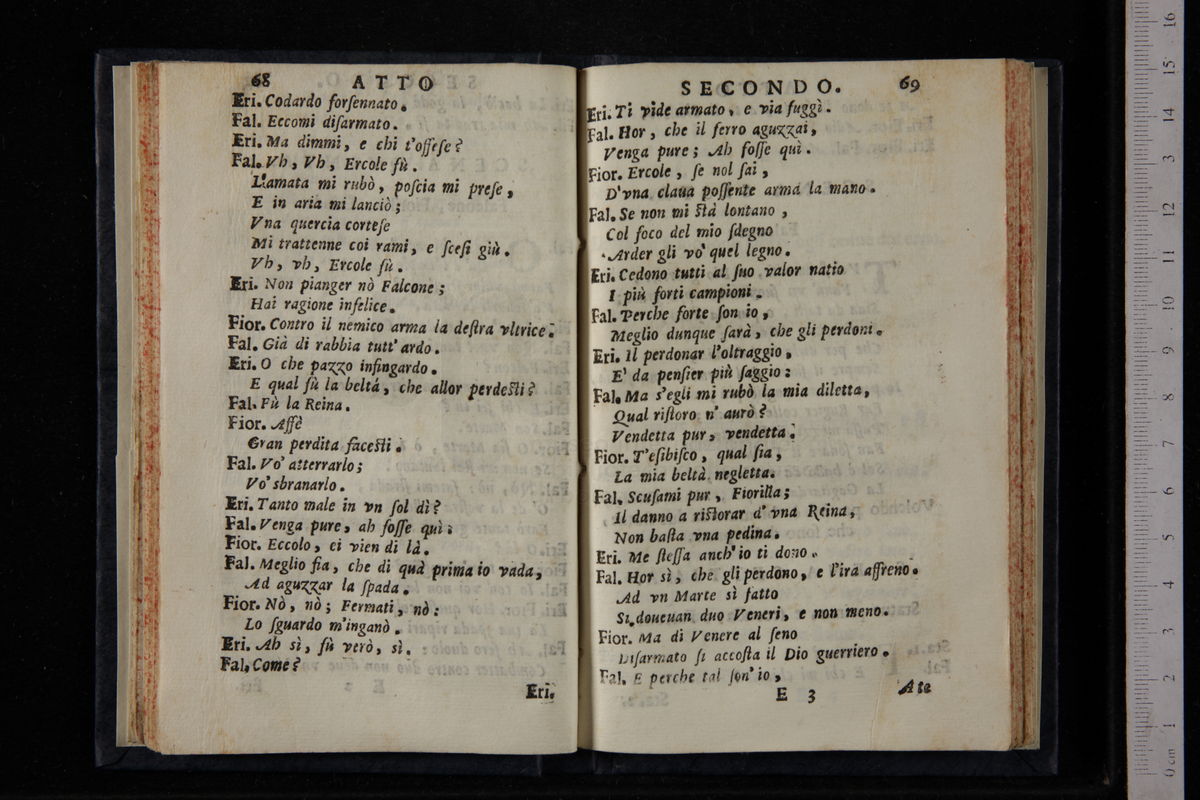 68 ATTO
Eri. Codardo forſennato.
Fal. Eccomi diſarmato.
Eri. Ma dimmi, e chi t'offeſe?
Fal. Vh, Vh, Ercole fù.
L'amata mi rubò, poſcia mi preſe,
E in aria mi lanciò;
Vna quercia corteſe
Mi trattenne coi rami, e ſceſi giù.
Vh, vh, Ercole fù.
Eri. Non pianger nò Falcone;
Hai ragione infelice.
Fior. Contro il nemico arma la deſtra vltrice.
Fal. Già di rabbia tutt' ardo.
Eri. O che pazzo infingardo.
E qual fù la beltá, che allor perdeſti?
Fal. Fù la Reina.
Fior. Affè
Gran perdita faceſti.
Fal. Vo' atterrarlo;
Vo' sbranarlo.
Eri. Tanto male in vn ſol dì?
Fal. Venga pure, ah foſſe quì:
Fior. Eccolo, ei vien di là.
Fal. Meglio fia, che di quà prima io vada,
Ad aguzzar la ſpada.
Fior. Nò, nò; Fermati, nò:
Lo ſguardo m'inganò.
Eri. Ah sì, fù verò, sì.
Fal. Come?
Eri.
SECONDO. 69
Eri. Ti vide armato, e via fuggì.
Fal. Hor, che il ferro aguzzai,
Venga pure; Ah foſſe quì.
Fior. Ercole, ſe nol ſai,
D'vna claua poſſente arma la mano.
Fal. Se non mi ſtà lontano,
Col foco del mio ſdegno
Arder gli vo' quel legno.
Eri. Cedono tutti al ſuo valor natio
I più forti campioni.
Fal. Perche forte ſon io,
Meglio dunque ſarà, che gli perdoni.
Eri. Il perdonar l'oltraggio,
E' da penſier più ſaggio:
Fal. Ma s'egli mi rubò la mia diletta,
Qual riſtoro n' aurò?
Vendetta pur, vendetta.
Fior. T'eſibiſco, qual ſia,
La mia beltà negletta.
Fal. Scuſami pur, Fiorilla;
Il danno a riſtorar d' vna Reina,
Non baſta vna pedina.
Eri. Me ſteſſa anch' io ti dono.
Fal. Hor sì, che gli perdono, e l'ira affreno.
Ad vn Marte sì fatto
Si doueuan duo Veneri, e non meno.
Fior. Ma di Venere al ſeno
Diſarmato ſi accoſta il Dio guerriero.
Fal. E perche tal ſon' io,
E 3 Ate